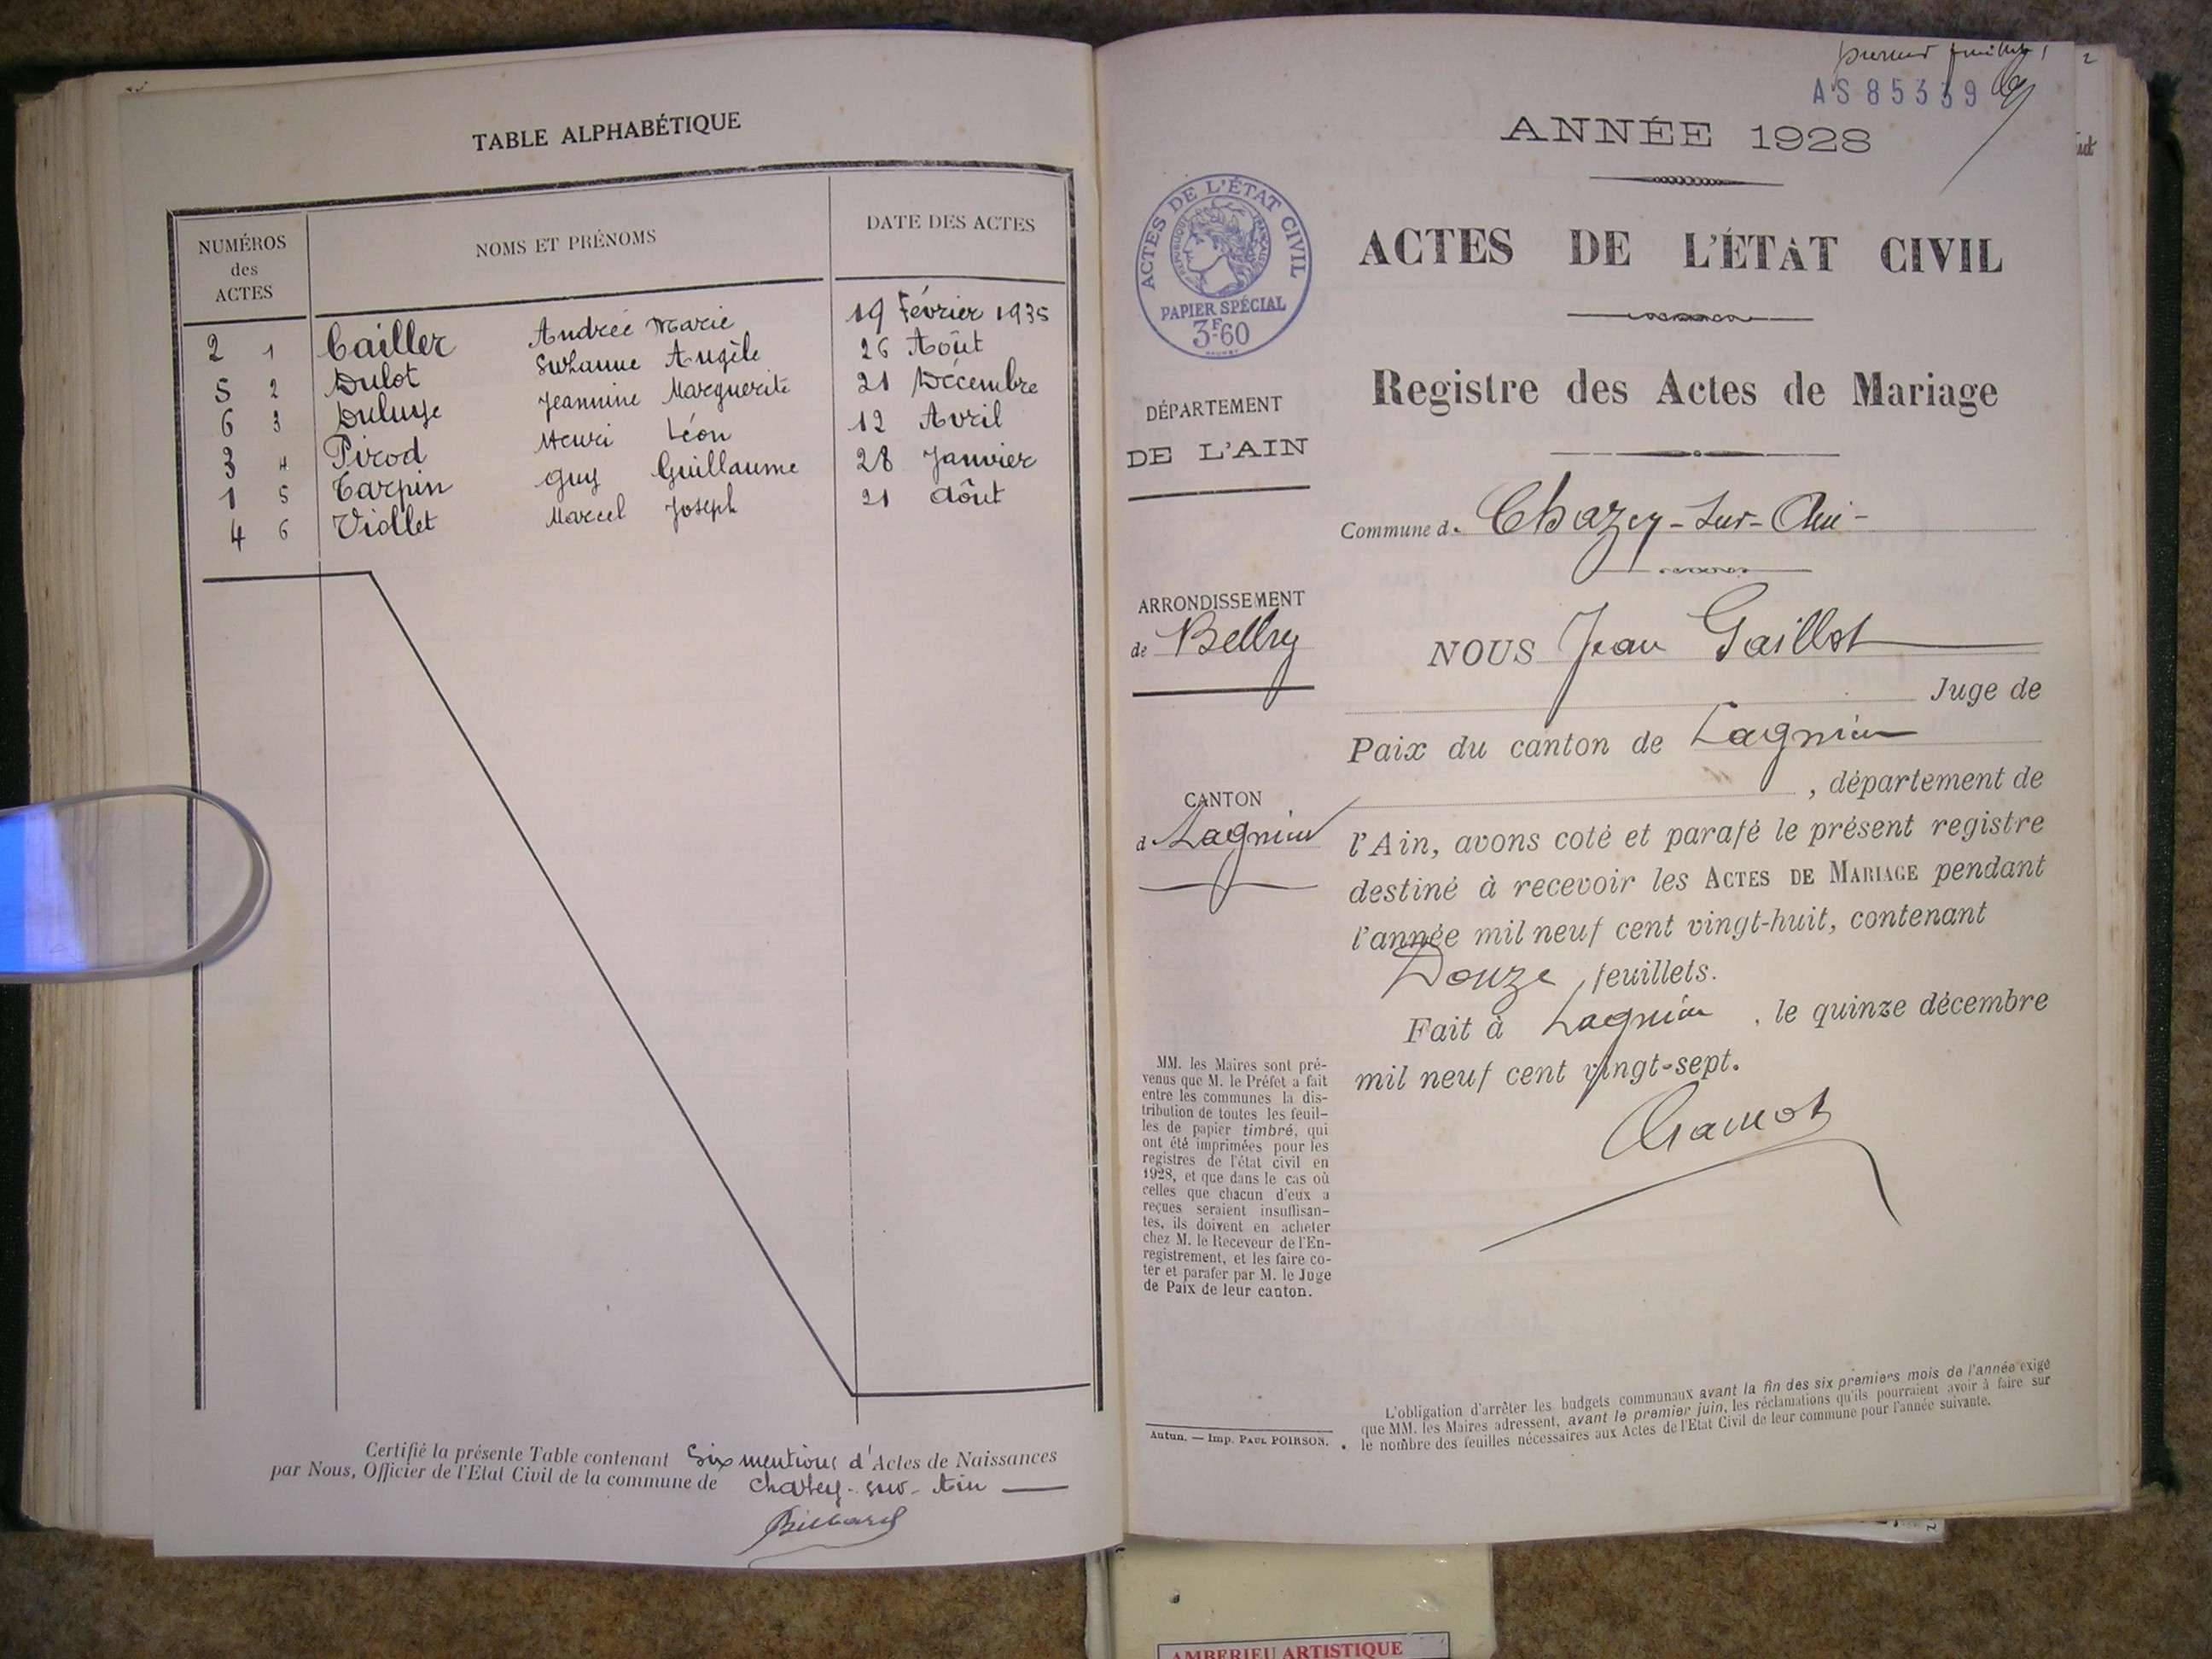 TABLE ALPHABÉTIQUE
NUMÉROS
des
ACTES
NOMS ET PRÉNOMS
DATE DES ACTES
2 1 Cailler Andrée Marie 19 Février 1935
5 2 Dulot Suzanne Angèle 26 Août
6 3 Jeannine Marguerite 21 Décembre
3 4 Pirod Henri Léon 12 Avril
1 5 Tarpin Guy Guillaume 28 Janvier
4 6 Viollet Marcel Joseph 21 Août
Certifié la présente Table contenant Six mentions d'Actes de Naissances
par Nous, Officier de l'Etat Civil de la commune de Chazey-sur-Ain
premier feuillet
AS 85339
ANNÉE 1928
ACTES DE L'ÉTAT CIVIL
RÉPUBLIQUE FRANÇAISE
PAPIER SPÉCIAL
3F60
ACTES DE L'ÉTAT CIVIL
Registre des Actes de Mariage
DÉPARTEMENT
DE L'AIN
Commune d. Chazey-sur-Ain
ARRONDISSEMENT
de Belley
NOUS Jean Gaillot
Juge de
Paix du canton de Lagnieu
, département de
CANTON
d Lagnieu
l'Ain, avons coté et parafé le présent registre
destiné à recevoir les ACTES DE MARIAGE pendant
l'année mil neuf cent vingt-huit, contenant
Douze feuillets.
Fait à Lagnieu, le quinze décembre
mil neuf cent vingt-sept.
MM. les Maires sont pré-
venus que M. le Préfet a fait
entre les communes la dis-
tribution de toutes les feuil-
les de papier timbré, qui
ont été imprimées pour les
registres de l'état civil en
1928, et que dans le cas où
celles que chacun d'eux a
reçues seraient insuffisan-
tes, ils doivent en acheter
chez M. le Receveur de l'En-
registrement, et les faire co-
ter et parafer par M. le Juge
de Paix de leur canton.
Autun. — Imp. PAUL POIRSON.
L'obligation d'arrêter les budgets communaux avant la fin des six premiers mois de l'année exige
que MM. les Maires adressent, avant le premier juin, les réclamations qu'ils pourraient avoir à faire sur
le nombre des feuilles nécessaires aux Actes de l'Etat Civil de leur commune pour l'année suivante.
AMBERIEU ARTISTIQUE